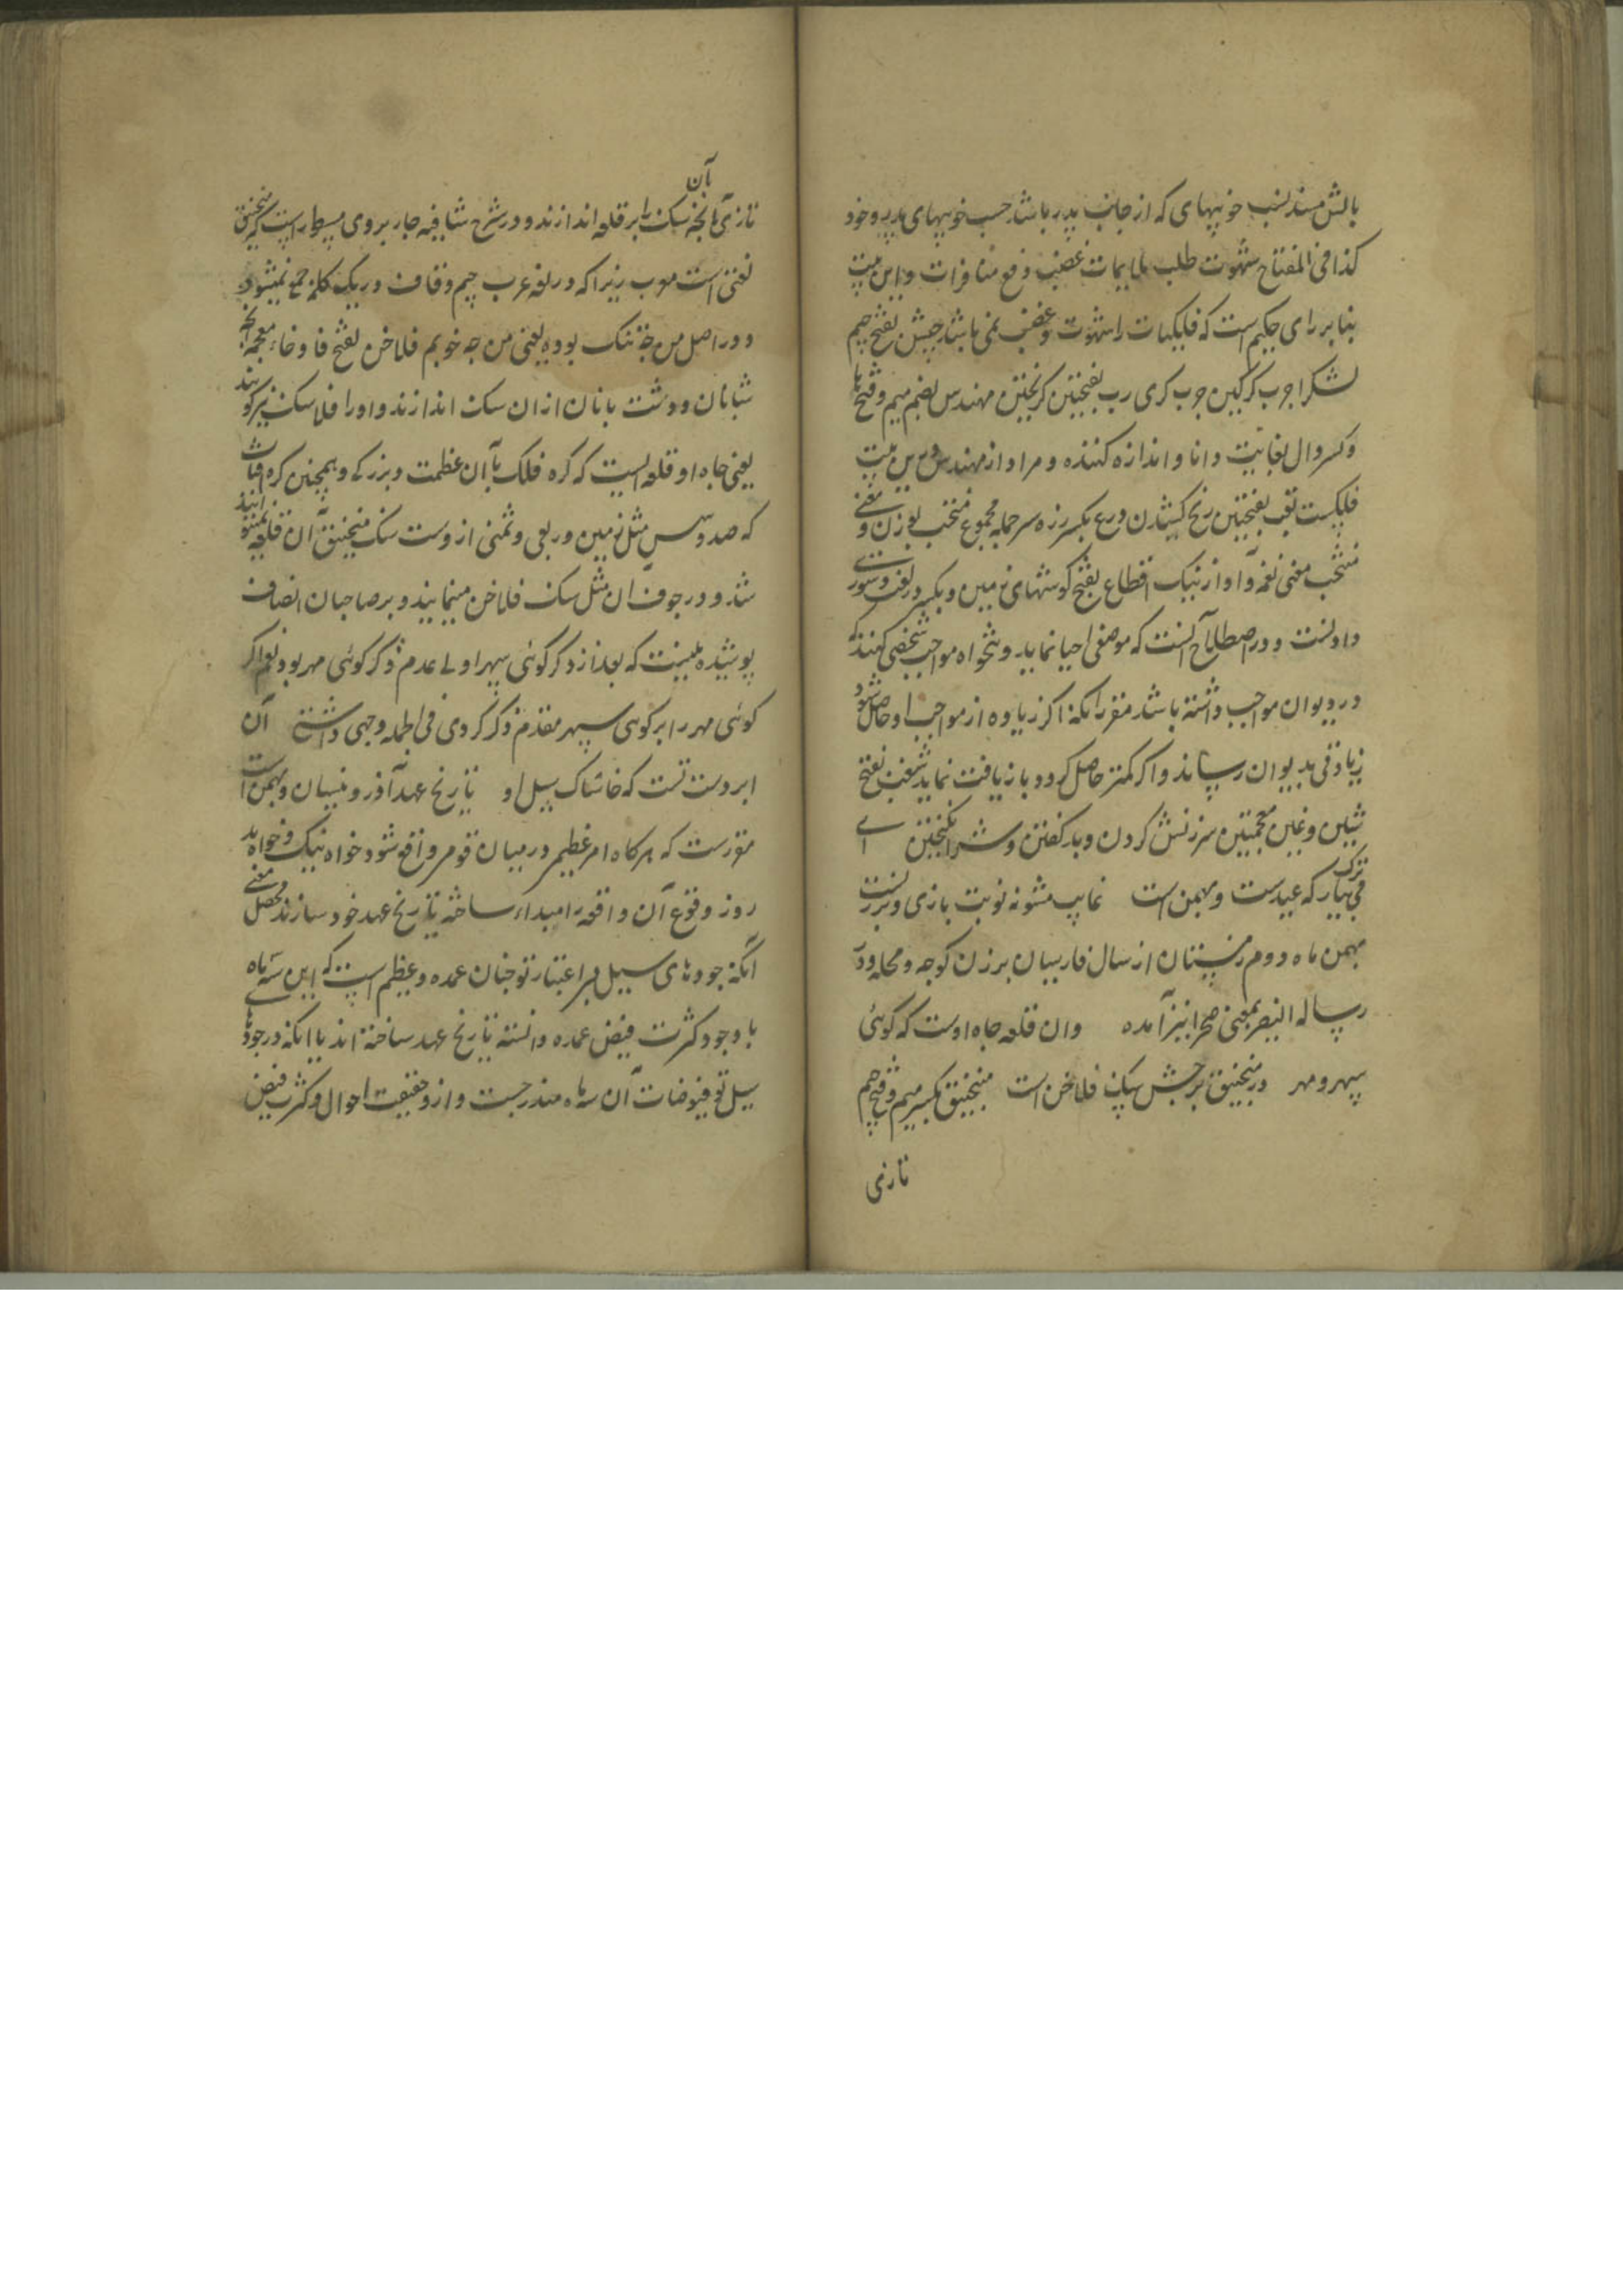 بالش مسند نسب خوبیهای که از جانب پدر باشد حسب خوبیهای پدر و خود
کذا فی المفتاح شهوت طلب ملایمات غضب دفع منافرات و این بیت
بنا بر رای حکیم است که فلکیات را شهوت و غضب نمی باشد جیش بفتح جیم
لشکر اجرب کرکین جرب کری رب بفتحتین کریختن مهندس بضم میم و فتح ها
و کسر دال بغایت دانا و اندازه کننده و مراد از مهندس درین بیت
فلکیست تعب بفتحتین رنج کشیدن درع بکسر زره سر جمله مجموع منتخب بوزن و معنی
منتخب معنی نغمه و آواز نیک اقطاع بفتح کوشهای زمین و بکسر در لغت دستوری
دادنست و در اصطلاح آنست که موضعی احیا نماید و تنخواه مواجب شخصی کنند که
در دیوان مواجب داشته باشد مقرر آنکه اکر زیاده از مواجب او حاصل شود
زیادتی بدیوان رساند و اکر کمتر حاصل کردد بازیافت نماید شغب بفتح
شین و غین معجمتین سرزنش کردن و بد کفتن و شر انکیختن ای
ترک می بیار که عیدست و بهمن است نماید مشونه نوبت بازی و برزنست
بهمن ماه دوم زمستان از سال فارسیان برزن کوچه و محله و در
رساله النیصر بمعنی صحرا نیز آمده وان قلعه جاه اوست که کوئی
سپهر و مهر در منجنیق برجش سنک فلاخن است منجنیق بکسر میم و فتح جیم
تازی
تازی آنچه سنک را بآن بر قلعه اندازند و در شرح شافیه جاربردی مسطور است که منجنیق
لغتی است معرب زیرا که در لغه عرب جیم و قاف در یک کلمه جمع نمیشود
و در اصل من جه تنک بوده یعنی من چه خوبم فلاخن بفتح فا و خاء معجمه آنچه
شبانان و دشت بانان ازان سنک اندازند و او را فلاسنک نیز کویند
یعنی جاه او قلعه ایست که کره فلک با آن عظمت و بزرکی و همچنین کره آفتاب
که صد و شصت مثل زمین و ربعی و ثمنی ازوست سنک منجنیق آن قلعه نمیتواند
شد و در جوف آن مثل سنک فلاخن مینمایند و بر صاحبان انصاف
پوشیده نیست که بعد از ذکر کوئی سپهر اولی عدم ذکر کوئی مهر بود بلی اکر
کوئی مهر را بر کوئی سپهر مقدم ذکر کردی فی الجمله وجهی داشتی آن
ابر دست تست که خاشاک سیل او تاریخ عهد آذر و نیسان و بهمن است
مقررست که هرکاه امر عظیم در میان قومی واقع شود خواه نیک و خواه بد
روز وقوع آن واقعه را مبداء ساخته تاریخ عهد خود سازند محصل معنی
آنکه جودهای سیل بی اعتبار تو چنان عمده و عظیم است که این سه ماه
با وجود کثرت فیض عمده دانسته تاریخ عهد ساخته اند یا آنکه در جودهای
سیل تو فیوضات آن سه ماه مندرجست و از حقیقت احوال و کثرت فیض